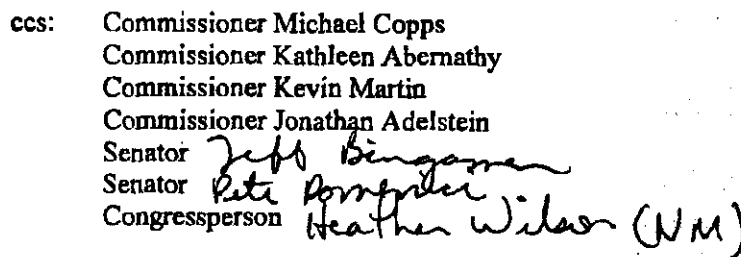 ccs: Commissioner Michael Copps
Commissioner Kathleen Abernathy
Commissioner Kevin Martin
Commissioner Jonathan Adelstein
Senator Jeff Bingaman
Senator Pete Domenici
Congressperson Heather Wilson (NM)